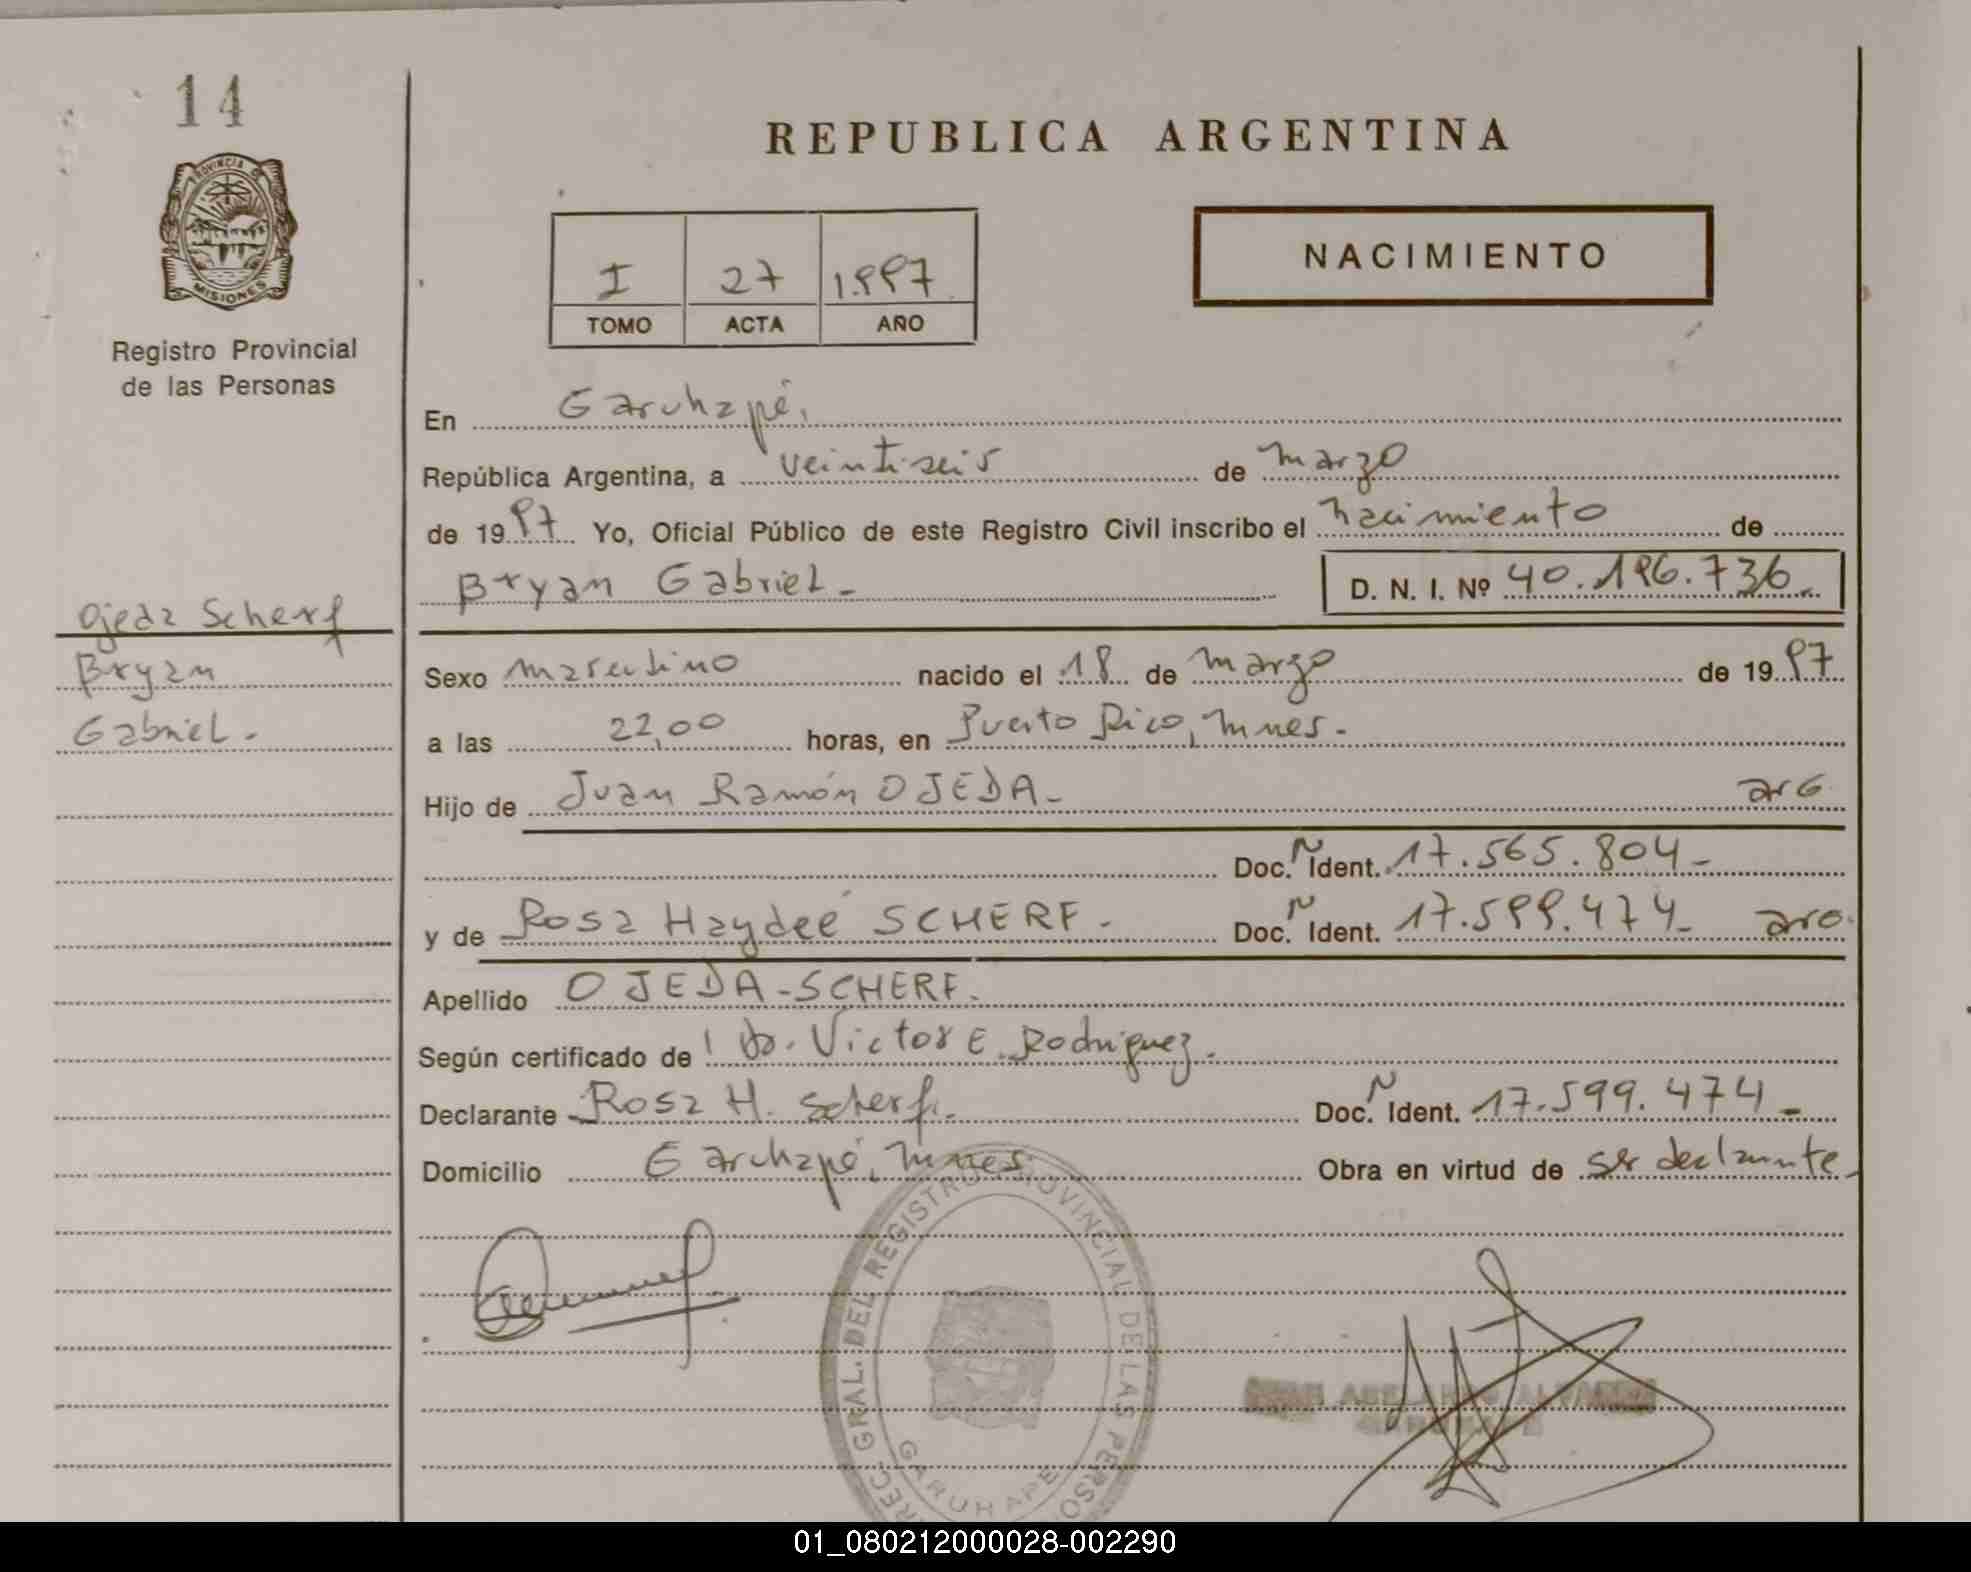 14
PROVINCIA DE
MISIONES
Registro Provincial
de las Personas
Ojeda Scherf
Bryan
Gabriel.
REPUBLICA ARGENTINA
I 27 1.997
TOMO ACTA AÑO
NACIMIENTO
En Garuhapé,
República Argentina, a veintiseis de marzo
de 1997 Yo, Oficial Público de este Registro Civil inscribo el nacimiento de
Bryan Gabriel.- D. N. I. Nº 40.196.736.
Sexo masculino nacido el 18 de marzo de 1997
a las 22,00 horas, en Puerto Rico, Mnes.-
Hijo de Juan Ramón OJEDA.- arG.
Doc. Ident. 17.565.804-
y de Rosa Haydeé SCHERF.- Doc. Ident. 17.599.474- arG.
Apellido OJEDA-SCHERF.
Según certificado de Dr. Victor E. Rodriguez.
Declarante Rosa H. Scherf.- Doc. Ident. 17.599.474-
Domicilio Garuhapé, Mnes. Obra en virtud de ser declarante
DIREC. GRAL. DEL REGISTRO PROVINCIAL DE LAS PERSONAS
GARUHAPE
01_080212000028-002290